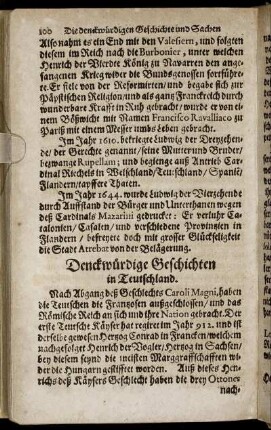 100 Die denckwürdigen Geschichte und Sachen
Also nahm es ein End mit den Valesiern, und folgten
diesem im Reich nach die Burbonier, unter welchen
Henrich der Vierdte König zu Navarren den ange-
fangenen Krieg wider die Bundsgenossen fortführe-
te. Er fiele von der Reformirten/ und begabe sich zur
Päpstischen Religion/ und als gantz Franckreich durch
wunderbare Krafft in Ruh gebracht/ wurde er von ei-
nem Bößwicht mit Namen Francisco Ravalliaco zu
Pariß mit einem Messer umbs Leben gebracht.
Im Jahr 1610. befriegte Ludwig der Dreyzehen-
de/ der Gerechte genannt/ seine Mutter und Bruder/
bezwange Rupellam; und begienge auß Antrieb Car-
dinal Richels in Welschland/Teutschland/Spanie/
Flandern/tapffere Thaten.
Im Jahr 1644. wurde Ludwig der Vierzehende
durch Auffstand der Bürger und Unterthanen wegen
deß Cardinals Mazarini gedrucket: Er verluhr Ca-
talonien/Casalen/ und verschiedene Provinzien in
Flandern/ befreyete doch mit grosser Glückseligkeit
die Stadt Attrebat von der Belägerung.
Denckwürdige Geschichten
in Teutschland.
Nach Abgang deß Geschlechts Caroli Magni, haben
die Teutschen die Frantzosen außgeschlossen/ und das
Römische Reich an sich und ihre Nation gebracht. Der
erste Teutsche Käyser hat regiret im Jahr 912. und ist
derselbe gewesen Hertzog Conrad in Francken welchem
nachgefolget Henrich der Vogler/Hertzog in Sachsen/
bey diesem seynd die meisten Marggraffschafften wi-
der die Hungarn gestifftet worden. Auß dieses Hen-
richs deß Käysers Geschlecht haben die drey Ottones
nach-